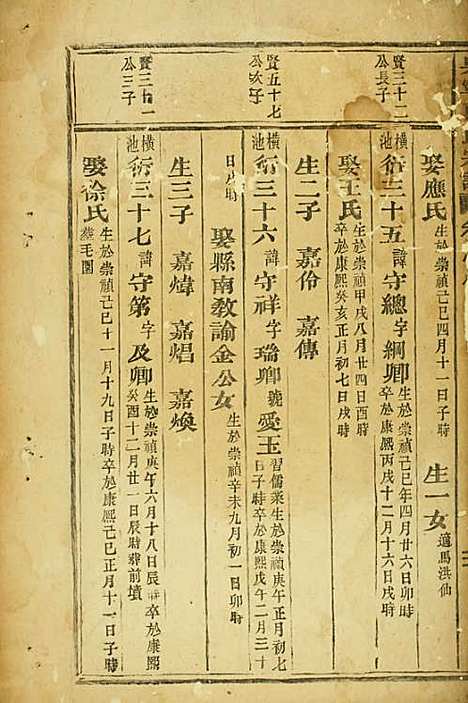 賢三十二
公長子
賢五十七
公次子
賢三十一
公三子
娶應氏 生於崇禎己巳四月十一日子時 生一女 適馬洪仙
橫池 衍三十五 諱守總字綱卿 生於崇禎己巳年四月廿六日卯時
卒於康熙丙戌十二月十六日戌時
娶王氏 生於崇禎甲戌八月廿四日酉時
卒於康熙癸亥正月初七日戌時
生二子 嘉伶 嘉傳
橫池 衍三十六 諱守祥字瑞卿號愛玉 習儒業生於崇禎庚午正月初七
日子時卒於康熙戊午二月三十
日戌時 娶縣南教諭金公女 生於崇禎辛未九月初一日卯時
生三子 嘉煒 嘉焻 嘉煥
橫池 衍三十七 諱守第字及卿 生於崇禎庚午六月十八日辰時卒於康熙
癸酉十二月廿一日辰時葬前墳
娶徐氏 生於崇禎己巳十一月十九日子時卒於康熙己巳正月十一日子時
葬毛園